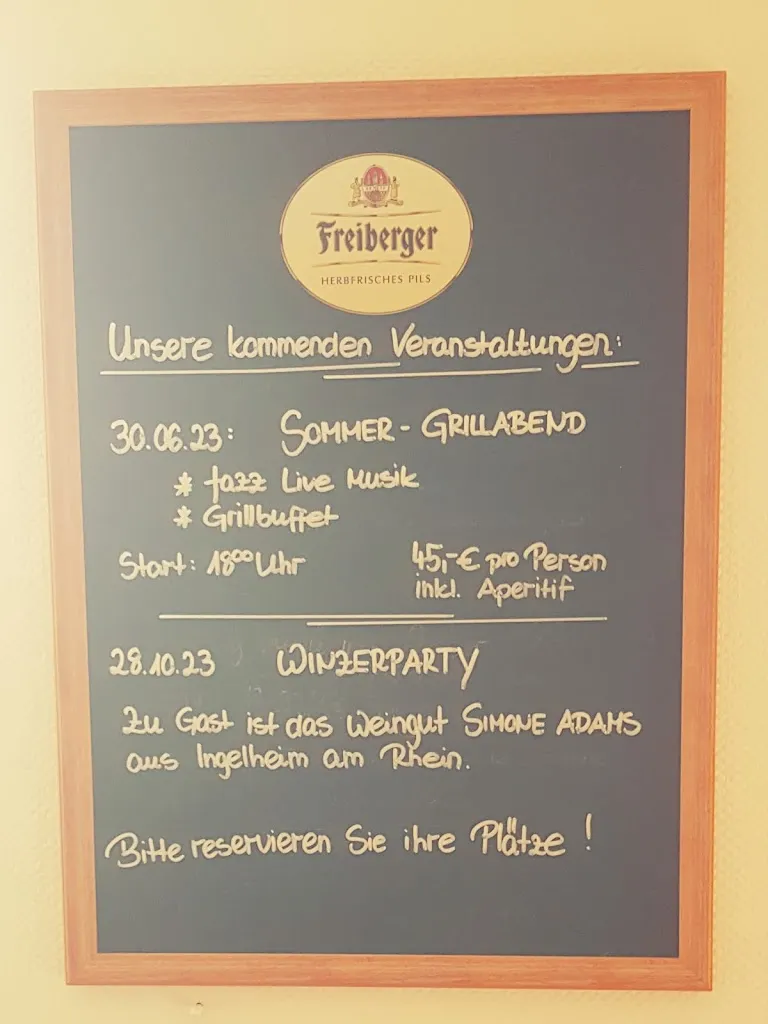 Freiberger
HERBFRISCHES PILS
Unsere kommenden Veranstaltungen:
30.06.23: SOMMER - GRILLABEND
* Jazz Live Musik
* Grillbuffet
Start: 18⁰⁰ Uhr 45,-€ pro Person
inkl. Aperitif
28.10.23 WINZERPARTY
Zu Gast ist das Weingut SIMONE ADAMS
aus Ingelheim am Rhein.
Bitte reservieren Sie ihre Plätze!